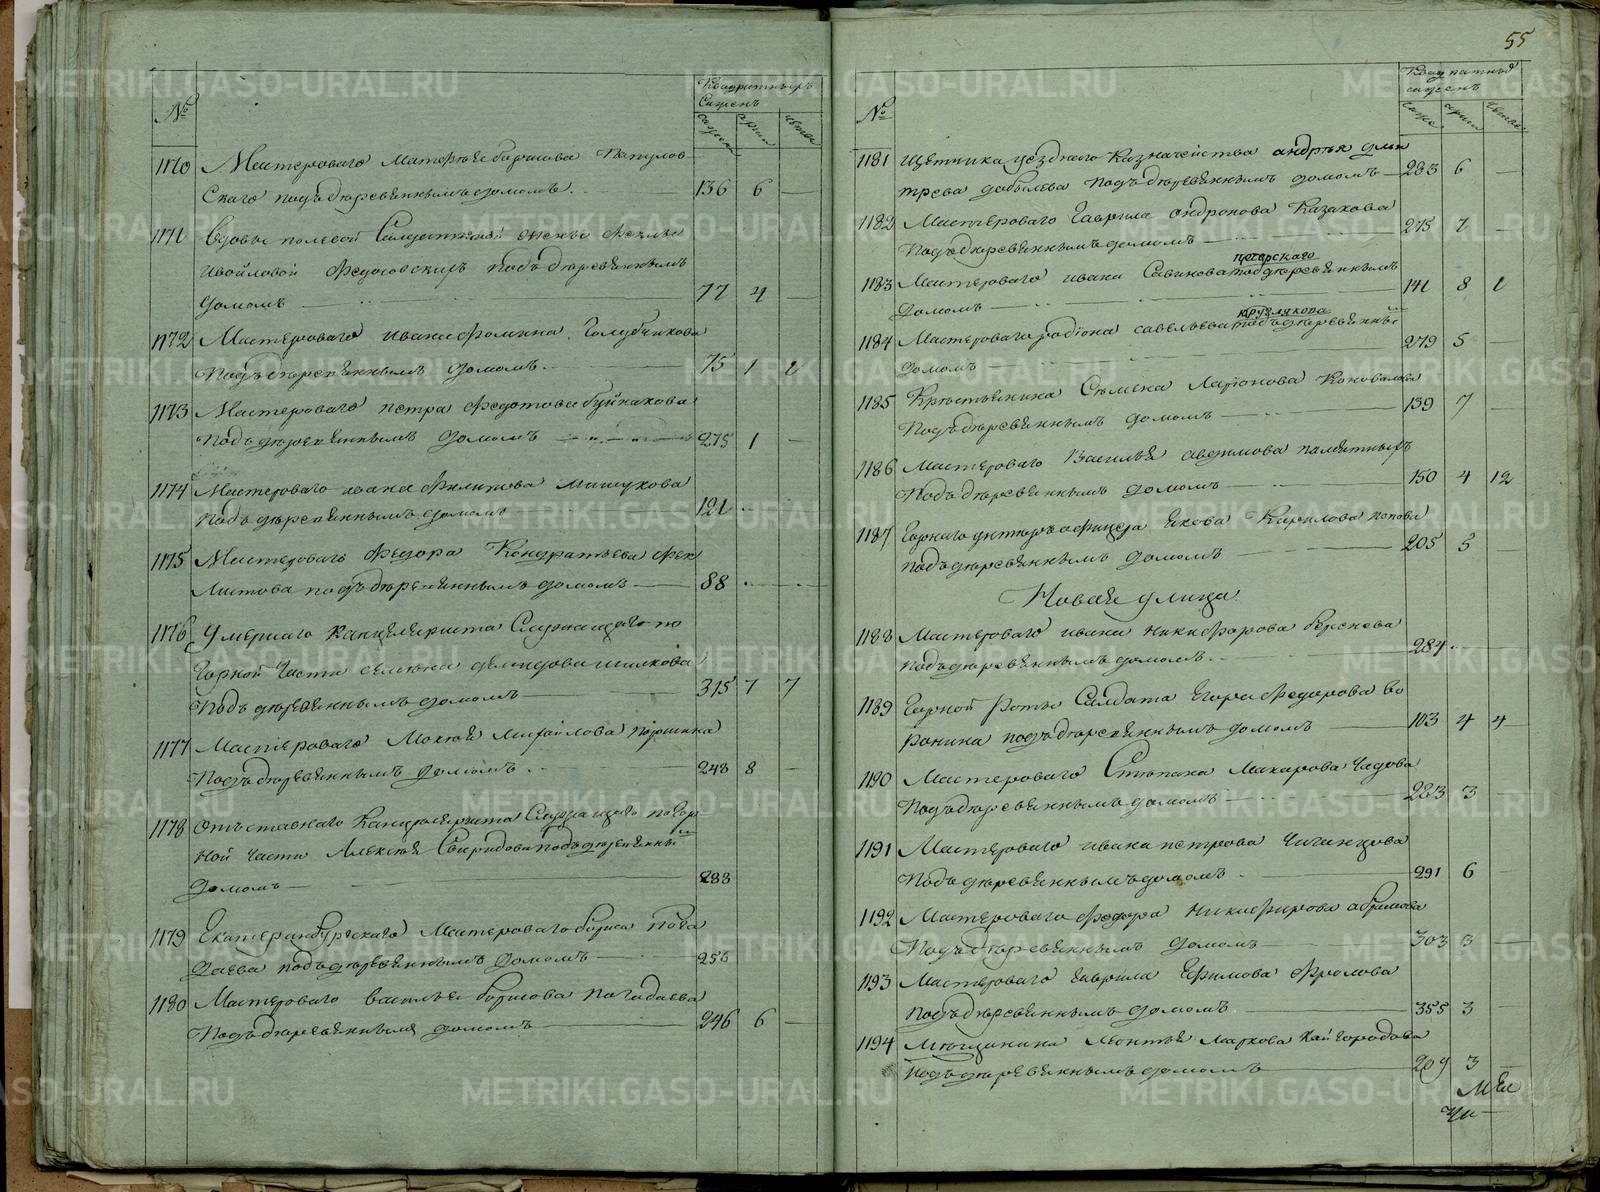 №
Квадратныхъ
Саженъ
1170 Мастероваго Матфѣя борисова Папулов
скаго подъ деревяннымъ домомъ. 136 6 —
1171 Вдовы полевой
Федосовскихъ подъ деревяннымъ
домомъ 77 4 —
1172 Мастероваго ивана фомина Голубчикова
Подъ деревяннымъ домомъ 75 1
1173 Мастероваго петра федотова буйнакова
Подъ деревяннымъ домомъ 275 1 —
1174 Мастероваго ивана филипова мишукова
подъ деревяннымъ домомъ 121
1175 Мастероваго Федора Кондратьева Фек
листова подъ деревяннымъ домомъ 88
1176 Умершаго канцеляриста Служащаго по
Горной Части семена
Подъ деревяннымъ домомъ 315 7 7
1177 Мастероваго Мокея михайлова
Подъ деревяннымъ домомъ 248 8 —
1178 Отъставнаго Канцеляриста Служащаго по гор
ной части Алексея Свиридова подъ деревянны
домомъ 288
1179 Екатеринбургскаго Мастероваго бориса Пога
даева подъ деревяннымъ домомъ 256
1180 Мастероваго василья борисова погадаева
Подъ деревяннымъ домомъ 246 6 —
55
№
Квадратныхъ
саженъ
1181 щетчика уезднаго Казначейства андрея дми
трева добылева подъ деревяннымъ домомъ 283 6 —
1182 Мастероваго Гаврила андронова Казакова
Подъ деревяннымъ домомъ 275 7 —
печерскаго
1183 Мастероваго ивана Савинова подъ деревяннымъ
домомъ 141 8 1
круглякова
1184 Мастероваго родіона савельева подъ деревянны
домомъ 279 5 —
1185 Крестьянина Семена Ларіонова Коновалова
Подъ деревяннымъ домомъ 139 7 —
1186 Мастероваго Василья авдимова палатныхъ
Подъ деревяннымъ домомъ 150 4 12
1187 Горнаго унтеръ афицера Якова Карпилова попова
подъ деревяннымъ домомъ 205 5
Новая улица
1188 Мастероваго ивана никифорова береснева
подъ деревяннымъ домомъ 284
1189 Горной Роты Салдата Егора федорова во
ронина подъ деревяннымъ домомъ 103 4 4
1190 Мастероваго Степана Макарова Чадова
Подъ деревяннымъ домомъ 283 3
1191 Мастероваго ивана петрова Чиганцова
Подъ деревяннымъ домомъ 291 6
1192 Мастероваго Федора Никифорова абрамова
Подъ деревяннымъ домомъ 303 3 —
1193 Мастероваго Гаврила Ефимова Фролова
Подъ деревяннымъ домомъ 355 3
1194 Мещанина Леонтья маркова Кайгородова
Подъ деревяннымъ домомъ 209 3